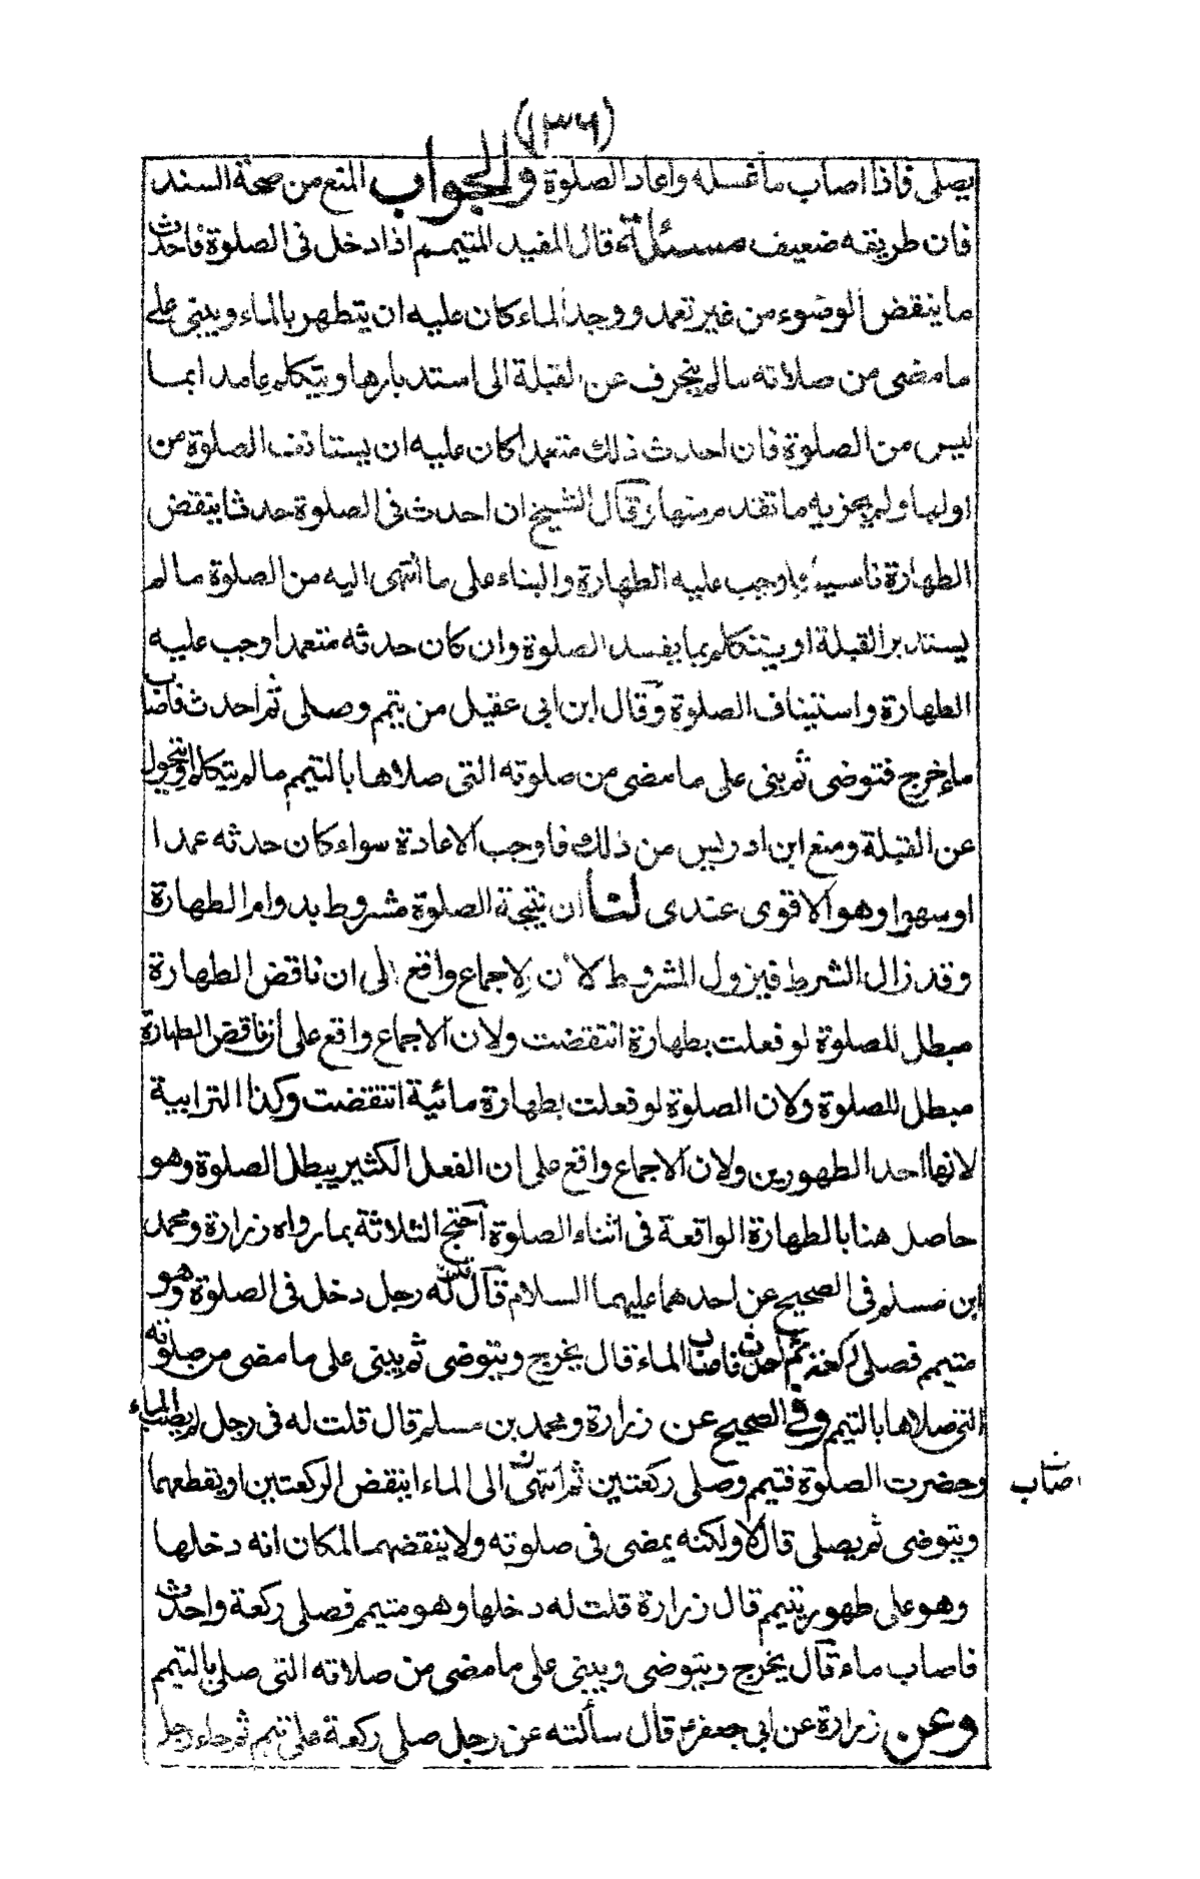 (١٣٦)
يصلى فاذا اصاب ماء غسله واعاد الصلوة والجواب المنع من صحة السند
فان طريقه ضعيف مسئلة قال المفيد المتيمم اذا دخل فى الصلوة فاحدث
ما ينقض الوضوء من غير تعمد ووجد الماء كان عليه ان يتطهر بالماء ويبنى على
ما مضى من صلاته مالم ينحرف عن القبلة الى استدبارها ويتكلم عامدا بما
ليس من الصلوة فان احدث ذلك متعمدا كان عليه ان يستانف الصلوة من
اولها ولم يجزيه ما تقدم منها وقال الشيخ ان احدث فى الصلوة حدثا ينقض
الطهارة ناسيا وجب عليه الطهارة والبناء على ما انتهى اليه من الصلوة مالم
يستدبر القبلة او يتكلم بما يفسد الصلوة وان كان حدثه متعمدا وجب عليه
الطهارة واستيناف الصلوة وقال ابن ابى عقيل من تيمم وصلى ثم احدث فاصاب
ماء خرج فتوضى ثم بنى على ما مضى من صلوته التى صلاها بالتيمم مالم يتكلم او يتحول
عن القبلة ومنع ابن ادريس من ذلك فاوجب الاعادة سواء كان حدثه عمدا
او سهوا وهو الاقوى عندى لنا ان نتيجة الصلوة مشروط بدوام الطهارة
وقد زال الشرط فيزول المشروط لان الاجماع واقع الى ان ناقض الطهارة
مبطل للصلوة لو فعلت بطهارة انتقضت ولان الاجماع واقع على ان ناقض الطهارة
مبطل للصلوة ولان الصلوة لو فعلت بطهارة مائية انتقضت وكذا الترابية
لانها احد الطهورين ولان الاجماع واقع على ان الفعل الكثير يبطل الصلوة وهو
حاصل هنا بالطهارة الواقعة فى اثناء الصلوة احتج الثلاثة بما رواه زرارة ومحمد
ابن مسلم فى الصحيح عن احدهما عليهما السلام قال قلت له رجل دخل فى الصلوة وهو
متيمم فصلى ركعة ثم احدث فاصاب الماء قال يخرج ويتوضى ثم يبنى على ما مضى من صلوته
التى صلاها بالتيمم وفى الصحيح عن زرارة ومحمد بن مسلم قال قلت له فى رجل لم يصب الماء
وحضرت الصلوة فتيمم وصلى ركعتين ثم انتهى الى الماء اينقض الركعتين او يقطعهما
اصاب
ويتوضى ثم يصلى قال لا ولكنه يمضى فى صلوته ولا ينقضهما لمكان انه دخلها
وهو على طهور بتيمم قال زرارة قلت له دخلها وهو متيمم فصلى ركعة واحدث
فاصاب ماء قال يخرج ويتوضى ويبنى على ما مضى من صلاته التى صلى بالتيمم
وعن زرارة عن ابى جعفر ع قال سألته عن رجل صلى ركعة على تيمم ثم جاء رجل